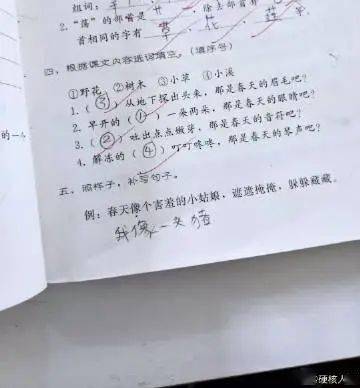 组词:
2. "荡"的部首是 艹 除去部首有
首相同的字有 草、花、莲 等。
四、根据课文内容选词填空。(填序号)
①野花 ②树木 ③小草 ④小溪
1. ( ③ )从地下探出头来,那是春天的眉毛吧?
2. 早开的( ① )一朵两朵,那是春天的眼睛吧?
3. ( ② )吐出点点嫩芽,那是春天的音符吧?
4. 解冻的( ④ )叮叮咚咚,那是春天的琴声吧?
五、照样子,补写句子。
例:春天像个害羞的小姑娘,遮遮掩掩,躲躲藏藏。
我像一头猪
的一
硬核人